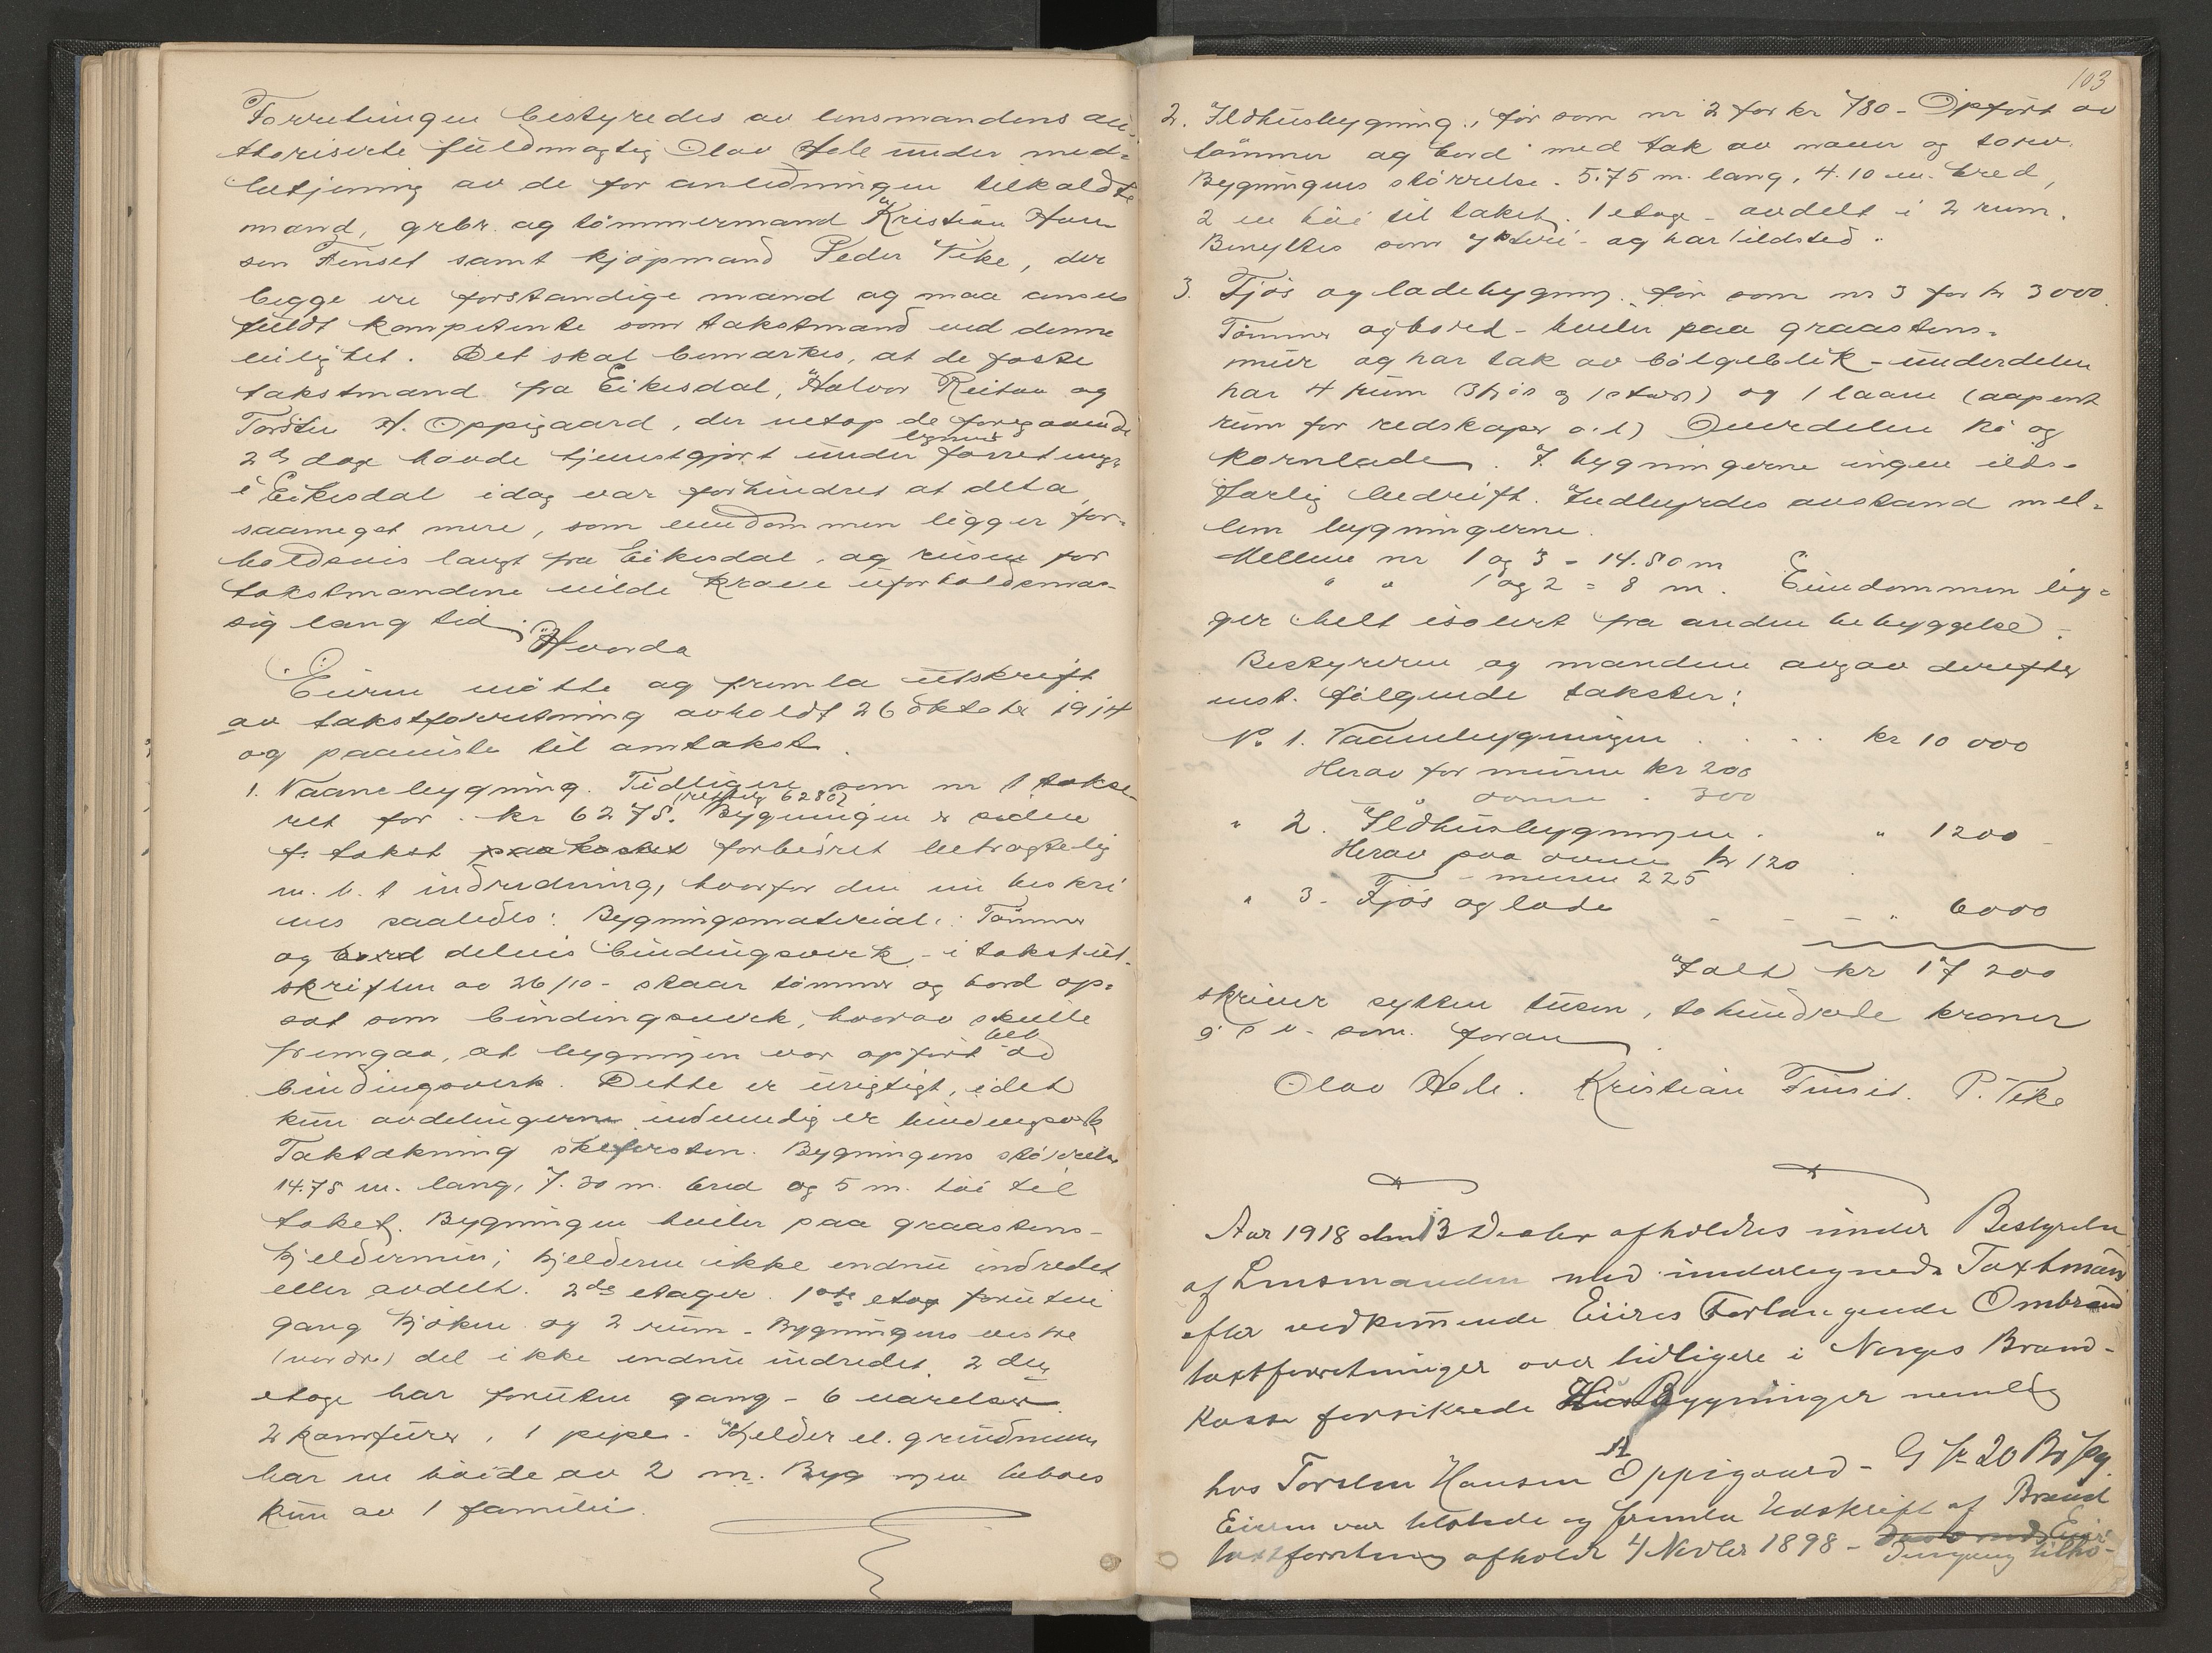 Forretningen bestyredes av lensmandens au-
thoriserte fuldmægtig Olav Hole under med-
betjening av de for anledningen tilkaldte
mænd, grbr. og tømmermand Kristian Han
sen Finset samt kjøpmand Peder Vike, der
begge er forstandige mænd og maa ansees
fuldt kompetente som takstmænd ved denne
leilighet. Det skal bemærkes, at de faste
takstmænd fra Eikesdal, Halvor Reitan og
Torstein H. Oppigaard, der netop de foregaaende
2de dage havde tjenstgjort under lignende forretninger
i Eikesdal idag var forhindret at delta,
saameget mere, som eiendommen ligger for-
holdsvis langt fra Eikesdal, og reisen for
takstmændene vilde kræve uforholdsmæs-
sig lang tid.
Hvorda
Eieren møtte og fremla utskrift
av takstforretning avholdt 26 oktober 1914
og paaviste til omtakst.
1. Vaanebygning. Tidligere som nr 1 takse-
ret for kr 6275. (rettelig 6280) Bygningen er siden
f. takst paakostet forbedret betragtelig
m. h. t indredning, hvorfor den nu beskri
ves saaledes: Bygningsmateriale: Tømmer
og bord delvis bindingsverk - i takstut-
skriften av 26/10 - staar tømmer og bord op-
sat som bindingsverk, hvorav skulle
fremgaa, at bygningen var opført helt av
bindingsverk. Dette er urigtigt, idet
kun avdelingerne indvendig er bindingsverk
Taktækning skifersten. Bygningens størrelse
14.75 m. lang, 7.30 m. bred og 5 m. høi til
taket. Bygningen hviler paa graastens-
kjeldermur; kjelderen ikke endnu indredet
eller avdelt. 2de etager. 1ste etag foruten
gang kjøken og 2 rum - Bygningens vestre
(nordre) del ikke endnu indredet. 2den
etage har foruten gang - 6 værelser.
2 komfurer, 1 pipe. Kjelder el. grundmuren
har en høide av 2 m. Bygningen beboes
kun av 1 familie.
103
2. Ildhusbygning, før som nr 2 for kr 780 - Opført av
tømmer og bord med tak av næver og torv.
Bygningens størrelse. 5.75 m. lang, 4.10 m. bred,
2 m høi til taket. 1 etage - avdelt i 2 rum.
Benyttes som ysteri - og har ildsted.
3. Fjøs og ladebygning, før som nr 3 for kr 3000.
Tømmer og bord - hviler paa graastens-
mur og har tak av bølgeblik - underdelen
har 4 rum (3 fjøs og 1 stald) og 1 laave (aapent
rum for redskaper o.l) Overdelen hø og
kornlade. I bygningerne ingen ilds-
farlig bedrift. Indbyrdes avstand mel-
lem bygningerne.
Mellem nr 1 og 3 = 14.80 m
" " 1 og 2 = 8 m. Eiendommen lig-
ger helt isolert fra anden bebyggelse.
Bestyreren og mændene avgav derefter
enst. følgende takster:
No 1. Vaanebygningen . . . . kr 10 000
Herav for muren kr 200
ovnene - 300
" 2. Ildhusbygningen . " 1200
Herav paa ovnen kr 120
- muren 225
" 3 - Fjøs og lade - - - " 6000
Ialt kr 17 200
skriver sytten tusen, tohundrede kroner
g s v. som foran
Olav Hole. Kristian Finset. P. Vike
Aar 1918 den 13 Decbr afholdtes under Bestyrelse
af Lensmanden med undertegnede Taxtmænd
efter vedkommende Eieres Forlangende Ombrand
taxtforretninger over tidligere i Norges Brand-
kasse forsikrede Hus Bygninger nemlig
hos Torsten Hansen Oppigaard - G Nr 20 Br
Eieren var tilstede og fremla Udskrift af Brand
taxtforretning afholdt 4 Novbr 1898 -